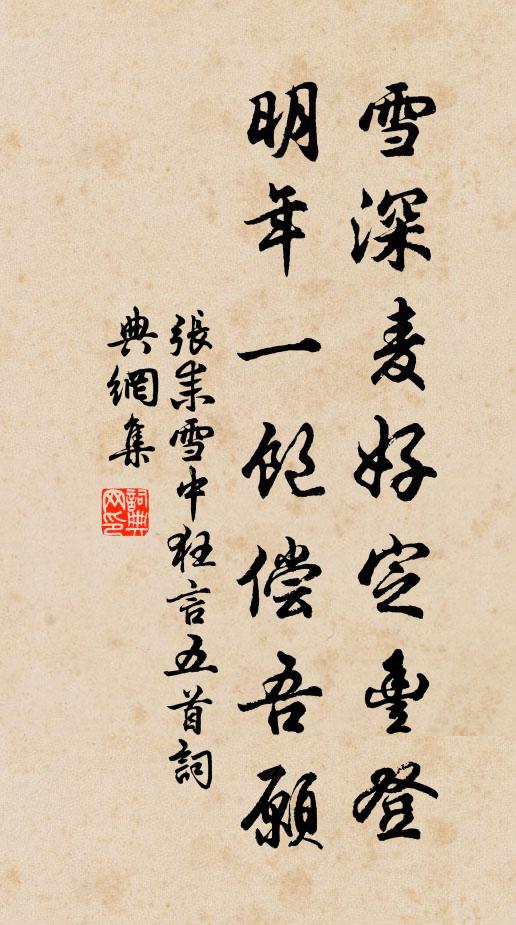 雪深麦好定豊登
明年一飽偿吾願
張耒雪中狂言五首詞
典網集
詞典
网印